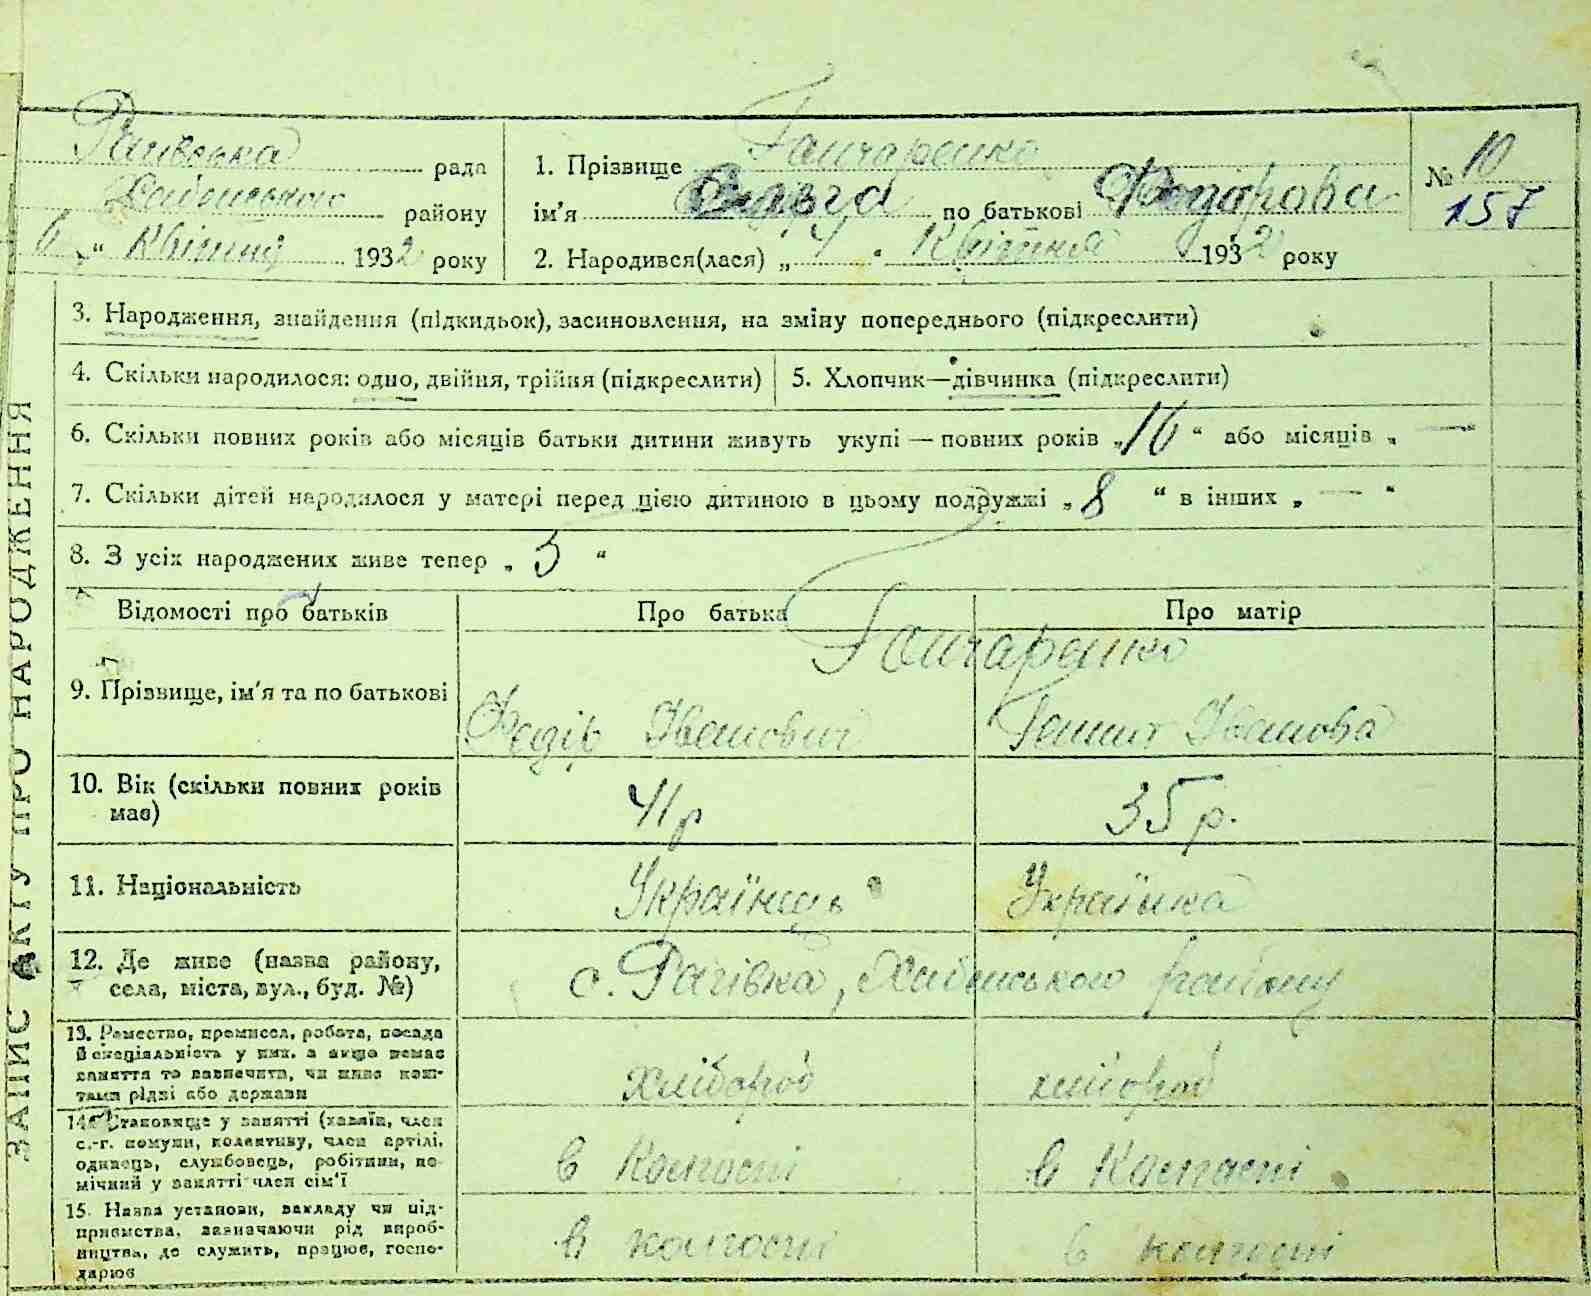 ЗАПИС АКТУ ПРО НАРОДЖЕННЯ
Рагівська рада
Хабенського району
6 „ Квітня 1932 року
1. Прізвище Гончаренко
ім'я Ольга по батькові Федорова
2. Народився(лася) „ 4 “ Квітня 1932 року
№ 10
157
3. Народження, знайдення (підкидьок), засиновлення, на зміну попереднього (підкреслити)
4. Скільки народилося: одно, двійня, трійня (підкреслити)
5. Хлопчик—дівчинка (підкреслити)
6. Скільки повних років або місяців батьки дитини живуть укупі — повних років „16“ або місяців „ — “
7. Скільки дітей народилося у матері перед цією дитиною в цьому подружжі „ 8 “ в інших „ — “
8. З усіх народжених живе тепер „ 5 “
Відомості про батьків Про батька Про матір
Гончаренко
9. Прізвище, ім'я та по батькові Федір Іванович Іванова
10. Вік (скільки повних років має) 41 р 35 р.
11. Національність Українець Українка
12. Де живе (назва району,
села, міста, вул., буд. №) с. Рагівка, Хабенського району
13. Ремество, промисел, робота, посада
й спеціяльність у них, а якщо немає
заняття то зазначити, чи живе кош-
тами рідні або держави хлібороб хлібороб
14. Становище у занятті (хазяїн, член
с.-г. комуни, колективу, член артілі,
одинець, службовець, робітник, по-
мічний у занятті член сім'ї в колгоспі в колгоспі
15. Назва установи, закладу чи під-
приємства, зазначаючи рід вироб-
ництва, де служить, працює, госпо-
дарює в колгоспі в колгоспі